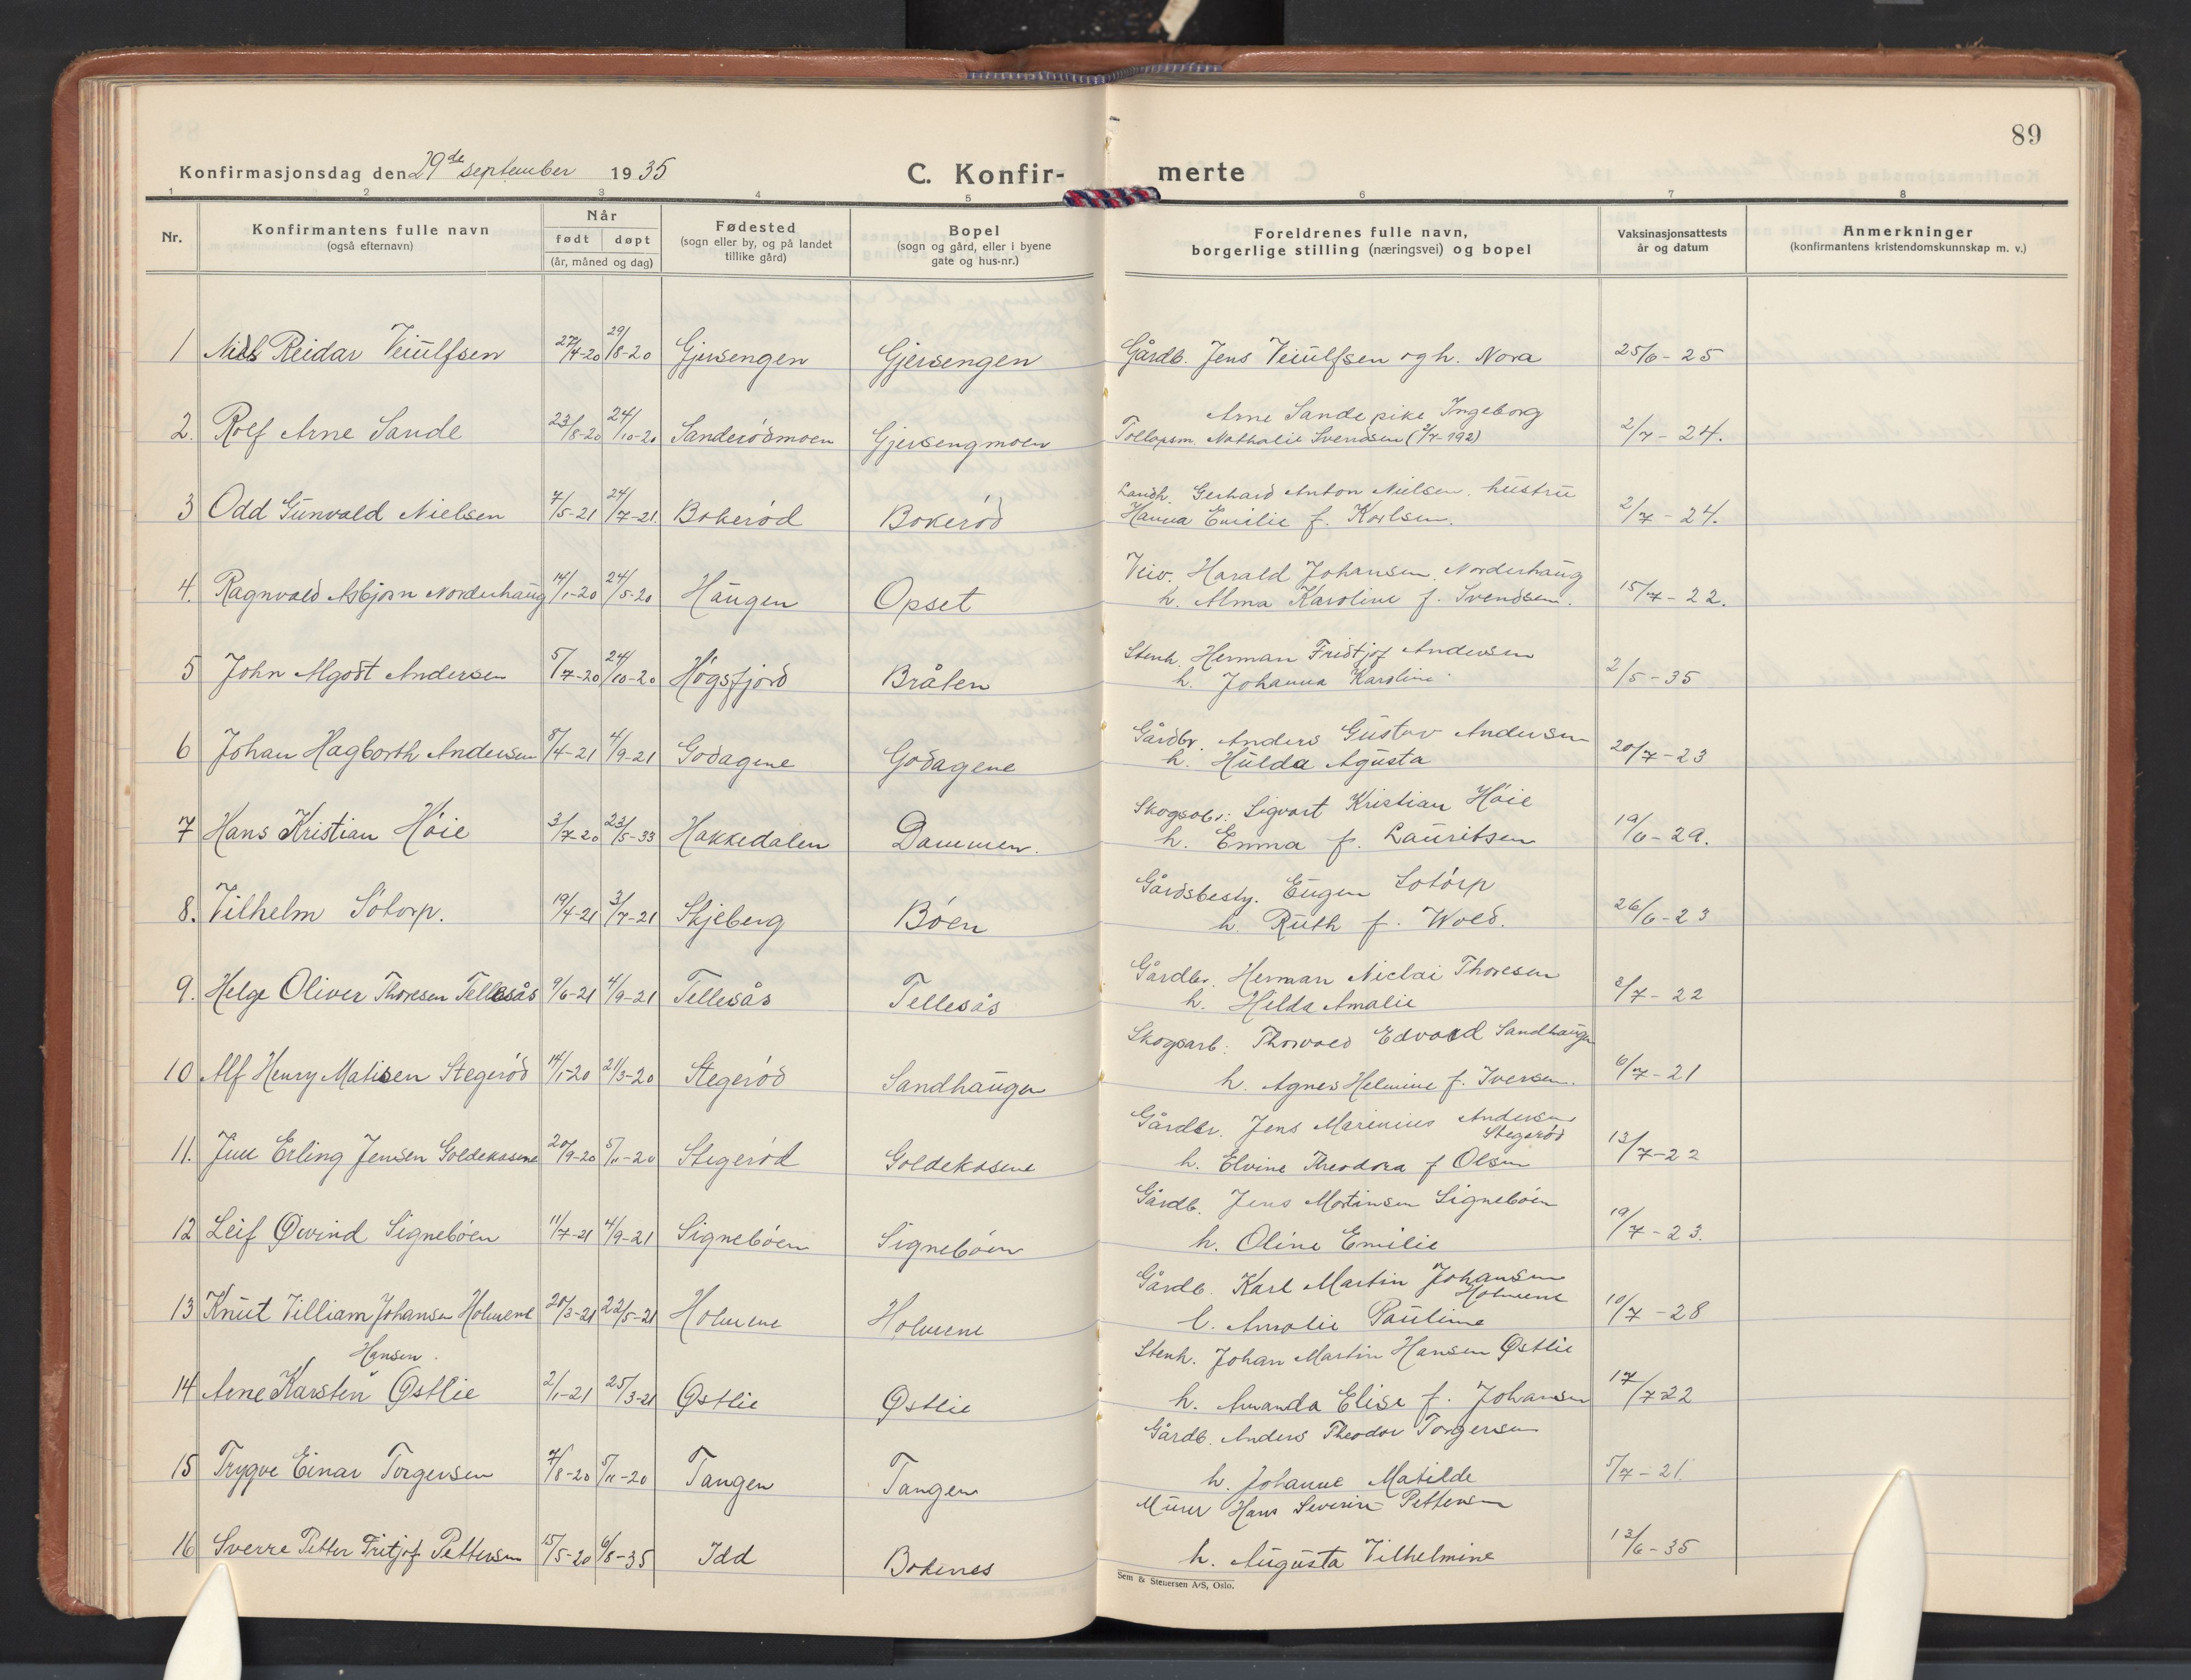 89
Konfirmasjonsdag den 29de september 1935
C. Konfir-merte
1 2 3 4 5 6 7 8
Nr. Konfirmantens fulle navn (også efternavn) Når født døpt (år, måned og dag) Fødested (sogn eller by, og på landet tillike gård) Bopel (sogn og gård, eller i byene gate og hus-nr.) Foreldrenes fulle navn, borgerlige stilling (næringsvei) og bopel Vaksinasjonsattests år og datum Anmerkninger (konfirmantens kristendomskunnskap m. v.)
1 Nils Reidar Veiulfsen 27/4-20 29/8-20 Gjersengen Gjersengen Gårdb. Jens Veiulfsen og h. Nora 25/6-25
Arne Sande pike Ingeborg
2. Rolf Arne Sande 23/8-20 24/10-20 Sanderödmoen Gjersengmoen Tollopsm. Nathalie Svendsen (2/7-192) 2/7-24.
Landh. Gerhard Anton Nielsen. hustru
3 Odd Gunvald Nielsen 7/5-21 24/7-21 Bokeröd Bokeröd Hanna Emilie f. Karlsen. 2/7-24.
Veiv. Harald Johansen Norderhaug
4. Ragnvald Asbjørn Norderhaug 14/1-20 24/5-20 Haugen Opset h. Alma Karoline f. Svendsen. 15/7-22.
Stenh. Herman Fridtjof Andersen
5 John Algodt Andersen 5/7-20 24/10-20 Høgsfjord Bråten h. Johanna Karoline 2/5-35
Gårdbr. Anders Gustav Andersen
6 Johan Hagborth Andersen 8/4-21 4/9-21 Godagene Godagene h. Hulda Agusta 20/7-23
Skogsarb.: Sigvart Kristian Höie
7 Hans Kristian Höie 3/7-20 23/5-33 Hakkedalen Dammen. h. Emma f. Lauritsen 19/6-29.
Gårdsbesty. Eugen Sotörp
8. Vilhelm Sötorp. 19/4-21 3/7-21 Skjeberg Böen h. Ruth f. Wold. 26/6-23
Gårdbr. Herman Niclai Thoresen
9. Helge Oliver Thoresen Tellesås 9/6-21 4/9-21 Tellesås Tellesås h. Hilda Amalie 3/7-22
Skogsarb. Thorvald Edvard Sandhaugen
10 Alf Henry Matisen Stegeröd 14/1-20 21/3-20 Stegeröd Sandhaugen h. Agnes Helmine f. Iversen. 6/7-21
Gårdbr. Jens Marinius Andersen
Stegeröd
11. Juul Erling Jensen Goldekasene 20/9-20 5/11-20 Stegeröd Goldekasene h. Elvine Theodora f Olsen 13/7-22
Gårdb. Jens Martinsen Signeböen
12 Leif Øivind Signeböen 11/7-21 4/9-21 Signeböen Signeböen h. Oline Emilie 19/7-23.
Gårdb. Karl Martin Johansen
Holmene
13 Knut Villiam Johansen Holmene 20/3-21 22/5-21 Holmene Holmene h. Amalie Pauline 10/7-28
Hansen. Stenh. Johan Martin Hansen Østlie
14 Arne Karsten Østlie 2/1-21 25/3-21 Østlie Østlie h. Amanda Elise f. Johansen 17/7-22
Gårdb. Anders Theodor Torgersen
15 Trygve Einar Torgersen 7/8-20 5/11-20 Tangen Tangen h. Johanne Matilde 5/7-21.
Murer Hans Severin Pettersen
16 Sverre Petter Fritjof Pettersen 15/5-20 6/8-35 Idd Bokenes h. Augusta Vilhelmine 13/6-35
Sem & Stenersen A/S, Oslo.